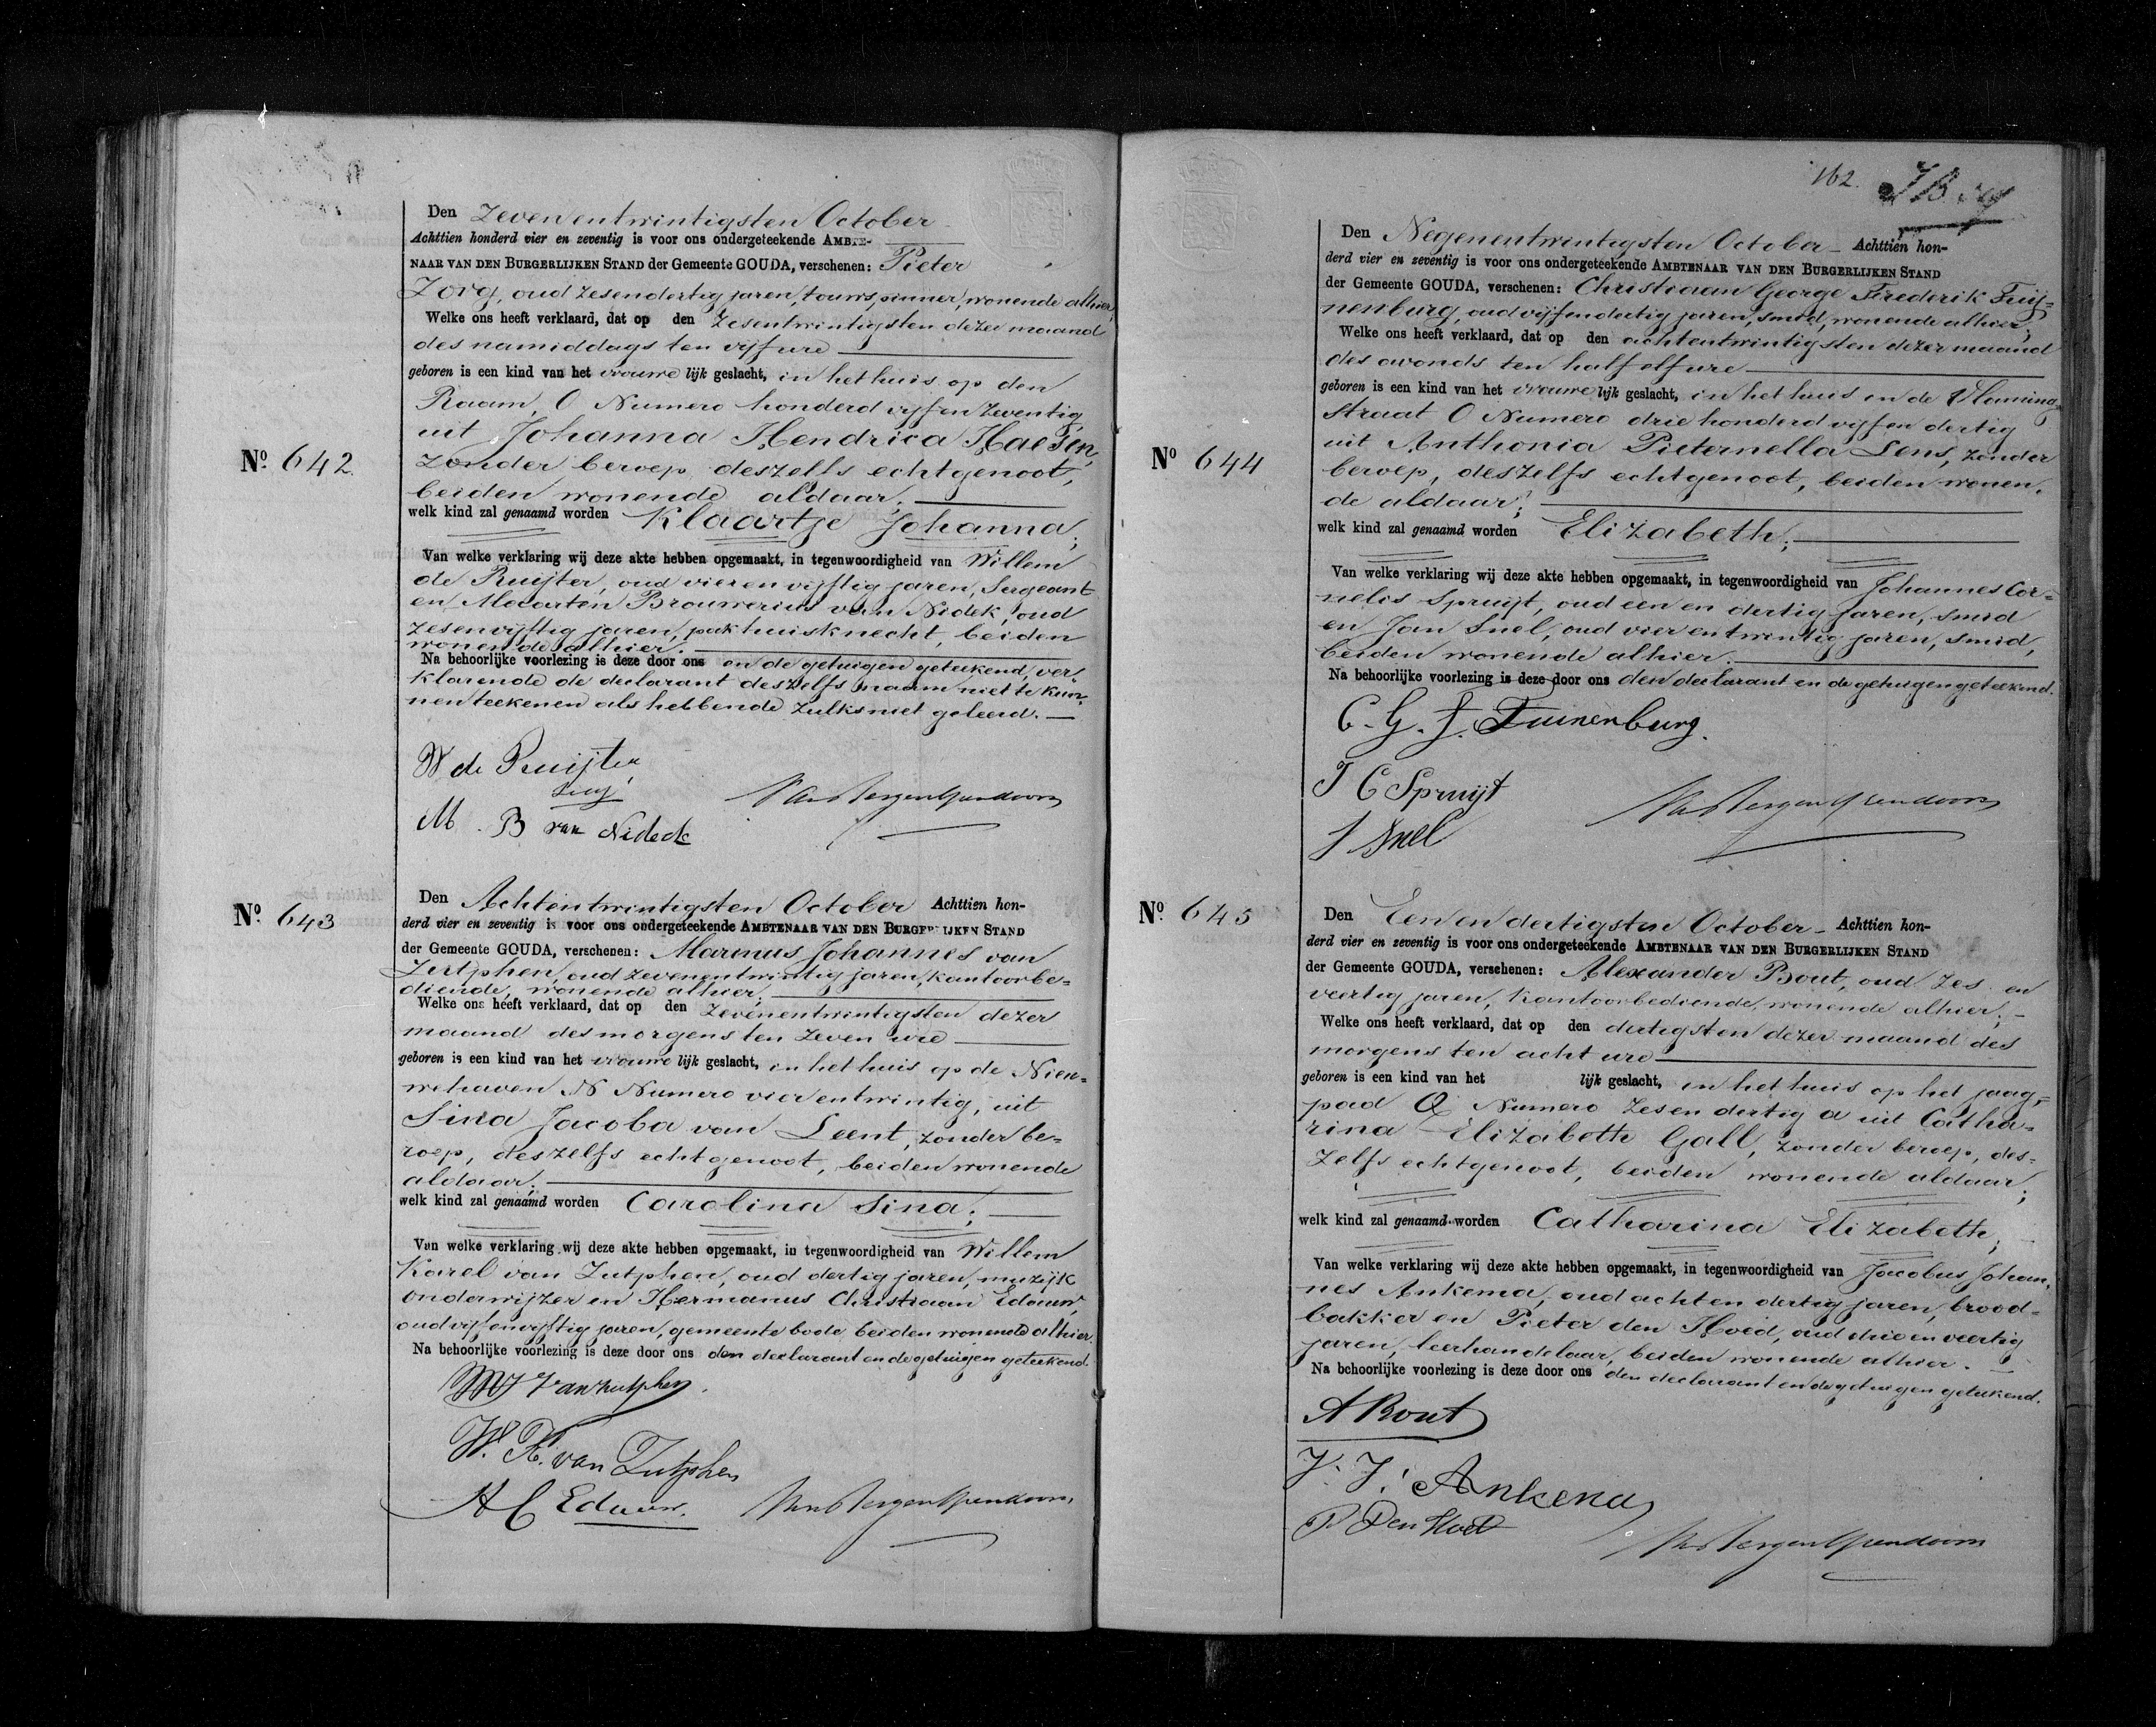 Den Zevenentwintigsten October
Achttien honderd vier en zeventig is voor ons ondergeteekende AMBTE-
NAAR VAN DEN BURGERLIJKEN STAND der Gemeente GOUDA, verschenen: Pieter
Zorg, oud zesendertig jaren, touwspinner, wonende alhier;
Welke ons heeft verklaard, dat op den zesentwintigsten dezer maand
des namiddags ten vijf ure
geboren is een kind van het vrouwe lijk geslacht, in het huis op den
Raam, O Numero honderd vijfenzeventig
uit Johanna Hendrica
Nº. 642.
zonder beroep, deszelfs echtgenoot,
beiden wonende aldaar;
welk kind zal genaamd worden Klaartje Johanna;
Van welke verklaring wij deze akte hebben opgemaakt, in tegenwoordigheid van Willem
de Ruijter, oud vier en vijftig jaren, Sergeant
en Maarten Brouwerius van Nidek, oud
zesenvijftig jaren, pakhuisknecht, beiden
wonende alhier.
Na behoorlijke voorlezing is deze door ons en de getuigen geteekend, ver-
klarende de declarant deszelfs naam niet te kun-
nen teekenen als hebbende zulks niet geleerd.
W de Ruijter
M. B van Nideck
Nº. 643
Den Achtentwintigsten October Achttien hon-
derd vier en zeventig is voor ons ondergeteekende AMBTENAAR VAN DEN BURGERLIJKEN STAND
der Gemeente GOUDA, verschenen: Marinus Johannes van
Zutphen, oud zevenentwintig jaren, kantoorbe-
diende, wonende alhier;
Welke ons heeft verklaard, dat op den zevenentwintigsten dezer
maand des morgens ten zeven ure
geboren is een kind van het vrouwe lijk geslacht, in het huis op de Nieu-
wehaven N Numero vierentwintig, uit
Sina Jacoba van Leent, zonder be-
roep, deszelfs echtgenoot, beiden wonende
aldaar;
welk kind zal genaamd worden Carolina Sina;
Van welke verklaring wij deze akte hebben opgemaakt, in tegenwoordigheid van Willem
Karel van Zutphen, oud dertig jaren, muzijk
onderwijzer en Hermanus Christiaan Edauw,
oud vijfenvijftig jaren, gemeentebode, beiden wonende alhier.
Na behoorlijke voorlezing is deze door ons den declarant en de getuigen geteekend.
MJ van Zutphen.
W. K. van Zutphen
H C Edauw.
162.
Den Negenentwintigsten October Achttien hon-
derd vier en zeventig is voor ons ondergeteekende AMBTENAAR VAN DEN BURGERLIJKEN STAND
der Gemeente GOUDA, verschenen: Christiaan George Frederik Tuij-
nenburg, oud vijfendertig jaren, smid, wonende alhier;
Welke ons heeft verklaard, dat op den achtentwintigsten dezer maand
des avonds ten half elf ure
geboren is een kind van het vrouwe lijk geslacht, in het huis in de Vlaming
Straat O Numero drie honderd vijfendertig
uit Anthonia Pieternella Lens, zonder
Nº 644
beroep, deszelfs echtgenoot, beiden wonen-
de aldaar;
welk kind zal genaamd worden Elizabeth;
Van welke verklaring wij deze akte hebben opgemaakt, in tegenwoordigheid van Johannes Cor-
nelis Spruijt, oud een en dertig jaren, smid
en Jan Snel, oud vier entwintig jaren, smid,
beiden wonende alhier.
Na behoorlijke voorlezing is deze door ons den declarant en de getuigen geteekend.
C. G. F. Tuinenburg.
J C Spruijt
J Snel
Nº. 645
Den Een en dertigsten October Achttien hon-
derd vier en zeventig is voor ons ondergeteekende AMBTENAAR VAN DEN BURGERLIJKEN STAND
der Gemeente GOUDA, verschenen: Alexander Bout, oud zes en
veertig jaren, kantoorbediende, wonende alhier;
Welke ons heeft verklaard, dat op den dertigsten dezer maand des
morgens ten acht ure
geboren is een kind van het lijk geslacht, in het huis op het jaag-
pad Q Numero zesendertig a uit Catha-
rina Elizabeth Gall, zonder beroep, des-
zelfs echtgenoot, beiden wonende aldaar;
welk kind zal genaamd worden Catharina Elizabeth;
Van welke verklaring wij deze akte hebben opgemaakt, in tegenwoordigheid van Jacobus Johan-
nes Ankema, oud acht en dertig jaren, brood-
bakker en Pieter den Hoed, oud drie en veertig
jaren, leerhandelaar, beiden wonende alhier.
Na behoorlijke voorlezing is deze door ons den declarant en de getuigen geteekend.
A Bout
J. J. Ankema
P Den Hoed